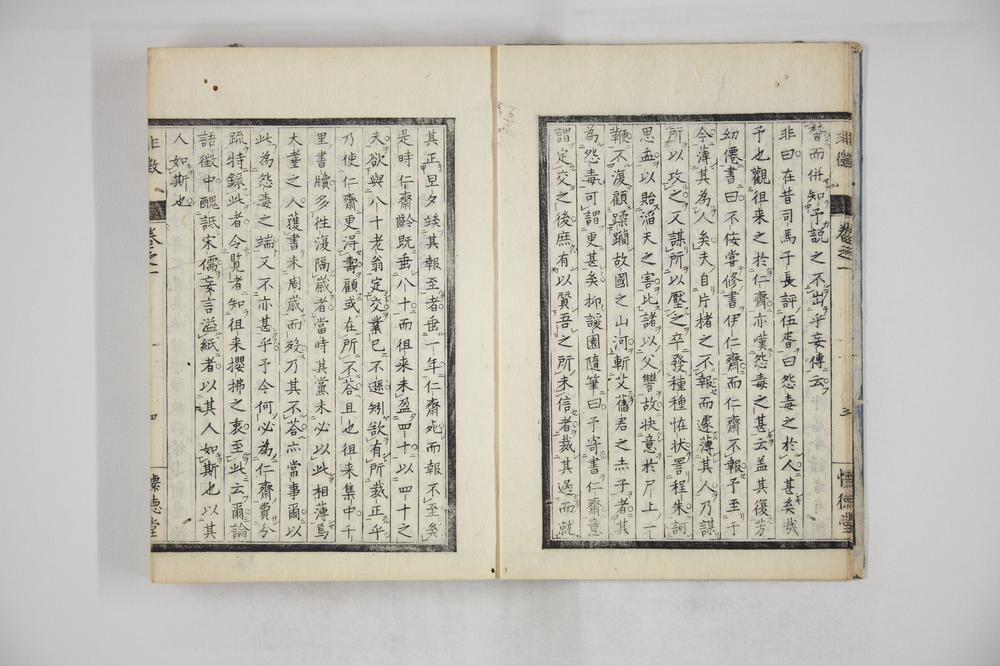 非徴 卷之一 三 懷德堂
嘗而併知予説之不出乎妄傳云
非曰在昔司馬子長評伍胥曰怨毒之於人甚矣哉
予也觀徂来之於仁齋亦嘆怨毒之甚云盖其後芳
幼僊書曰不佞嘗修書伊仁齋而仁齋不報予至于
今薄其為人矣夫自片楮之不報而遽薄其人乃謀
所以攻之又謀所以壓之卒發種種怪状詈程朱訶
思孟以貽滔天之害此諸以父讐故快意於尸上一
鞭不復顧蹂躙故國之山河斬艾舊君之赤子者其
為怨毒可謂更甚矣抑諼園隨筆曰予寄書仁齋意
謂定交之後庶有以賛吾之所未信者裁其過而就
其正旦夕竢其報至者垂一年仁齋死而報不至矣
是時仁齋齡既垂八十而徂来未盈四十以四十之
夫欲與八十老翁定交業已不遜矧欲有所裁正乎
乃使仁齋更淂壽顧或在所不荅且也徂来集中千
里書牘多徃復隔歳者當時其黨未必以此相薄焉
大耋之人獲書未周歳而殁乃其不荅亦常事爾以
此為怨毒之端又不亦甚乎予今何必為仁齋賞分
疏特録此者令覧者知徂来攖拂之衷至此云爾論
語徴中醜詆宋儒妄言溢紙者以其人如斯也以其
人如斯也
非徴 卷之一 四 懷德堂